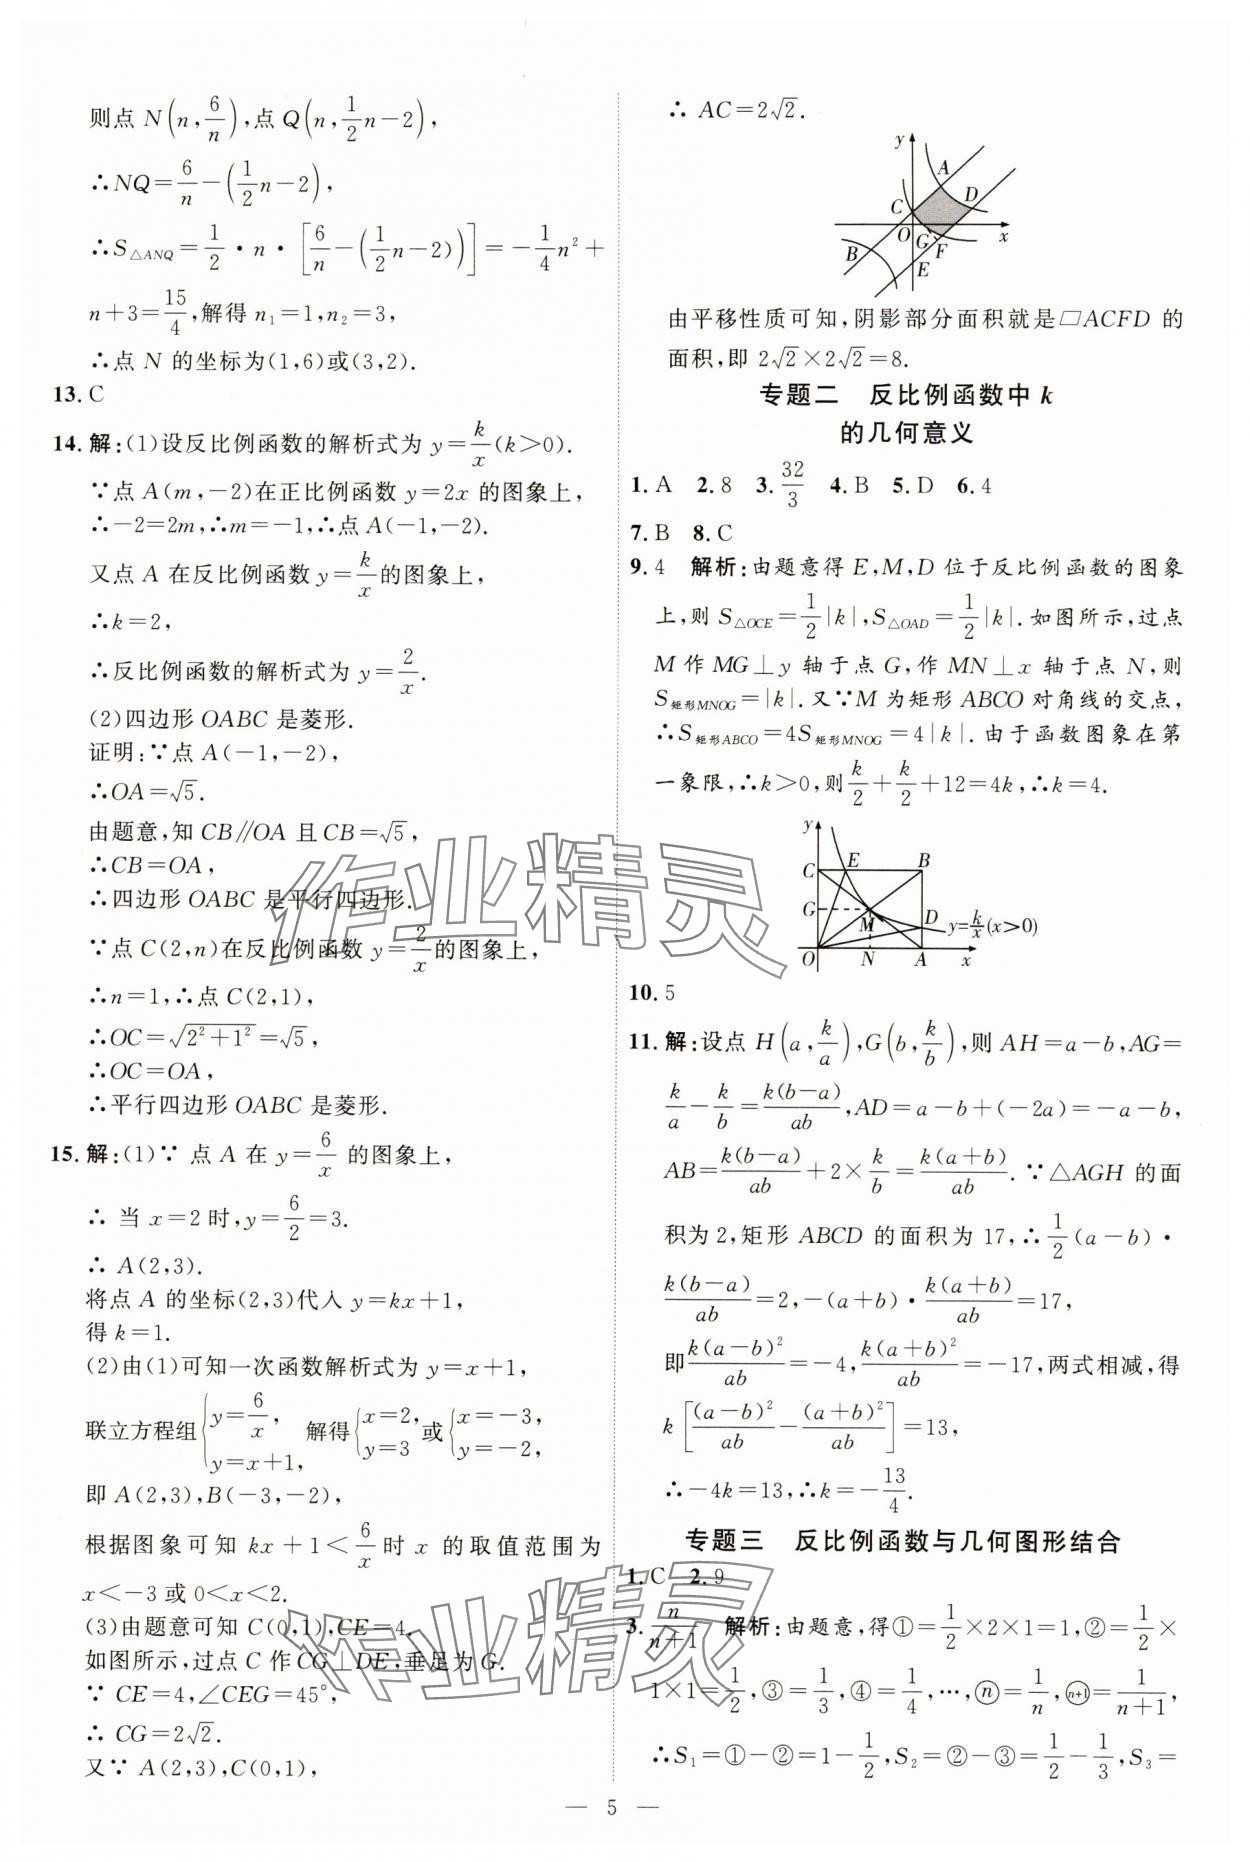 则点 N(n, 6/n), 点 Q(n, 1/2 n-2),
∴NQ=6/n-(1/2 n-2),
∴S△ANQ=1/2·n·[6/n-(1/2 n-2)]=-1/4 n²+
n+3=15/4,解得 n₁=1,n₂=3,
∴点 N 的坐标为(1,6)或(3,2).
13. C
14. 解:(1)设反比例函数的解析式为 y=k/x(k>0).
∵点 A(m,-2)在正比例函数 y=2x 的图象上,
∴-2=2m,∴m=-1,∴点 A(-1,-2).
又点 A 在反比例函数 y=k/x的图象上,
∴k=2,
∴反比例函数的解析式为 y=2/x.
(2)四边形 OABC 是菱形.
证明:∵点 A(-1,-2),
∴OA=√5.
由题意,知 CB∥OA 且 CB=√5,
∴CB=OA,
∴四边形 OABC 是平行四边形.
∵点 C(2,n)在反比例函数 y=2/x的图象上,
∴n=1,∴点 C(2,1),
∴OC=√(2²+1²)=√5,
∴OC=OA,
∴平行四边形 OABC 是菱形.
15. 解:(1)∵ 点 A 在 y=6/x 的图象上,
∴ 当 x=2 时,y=6/2=3.
∴ A(2,3).
将点 A 的坐标(2,3)代入 y=kx+1,
得 k=1.
(2)由(1)可知一次函数解析式为 y=x+1,
联立方程组{y=6/x, y=x+1, 解得{x=2, y=3 或{x=-3, y=-2,
即 A(2,3),B(-3,-2),
根据图象可知 kx+1<6/x 时 x 的取值范围为
x<-3 或 0<x<2.
(3)由题意可知 C(0,1),CE=4.
如图所示,过点 C 作 CG⊥DE,垂足为 G.
∵ CE=4,∠CEG=45°,
∴ CG=2√2.
又∵ A(2,3),C(0,1),
∴ AC=2√2.
y
A
D
C
O
G
F
x
B
E
由平移性质可知,阴影部分面积就是□ACFD 的
面积,即 2√2×2√2=8.
专题二 反比例函数中 k
的几何意义
1. A 2. 8 3. 32/3 4. B 5. D 6. 4
7. B 8. C
9. 4 解析:由题意得 E,M,D 位于反比例函数的图象
上,则 S△OCE=1/2|k|,S△OAD=1/2|k|.如图所示,过点
M 作 MG⊥y 轴于点 G,作 MN⊥x 轴于点 N,则
S矩形MNOG=|k|.又∵M 为矩形 ABCO 对角线的交点,
∴S矩形ABCO=4S矩形MNOG=4|k|.由于函数图象在第
一象限,∴k>0,则k/2+k/2+12=4k,∴k=4.
y
C
E
B
G
M
D
y=k/x(x>0)
O
N
A
x
10. 5
11. 解:设点 H(a, k/a),G(b, k/b),则 AH=a-b,AG=
k/a-k/b=k(b-a)/ab,AD=a-b+(-2a)=-a-b,
AB=k(b-a)/ab+2×k/b=k(a+b)/ab.∵△AGH 的面
积为 2,矩形 ABCD 的面积为 17,∴1/2(a-b)·
k(b-a)/ab=2,-(a+b)·k(a+b)/ab=17,
即k(a-b)²/ab=-4,k(a+b)²/ab=-17,两式相减,得
k[(a-b)²/ab-(a+b)²/ab]=13,
∴-4k=13,∴k=-13/4.
专题三 反比例函数与几何图形结合
1. C 2. 9
3. n/(n+1) 解析:由题意,得①=1/2×2×1=1,②=1/2×
1×1=1/2,③=1/3,④=1/4,…,ⓝ=1/n,(n+1)=1/(n+1),
∴S₁=①-②=1-1/2,S₂=②-③=1/2-1/3,S₃=
— 5 —
作业精灵
作业精灵